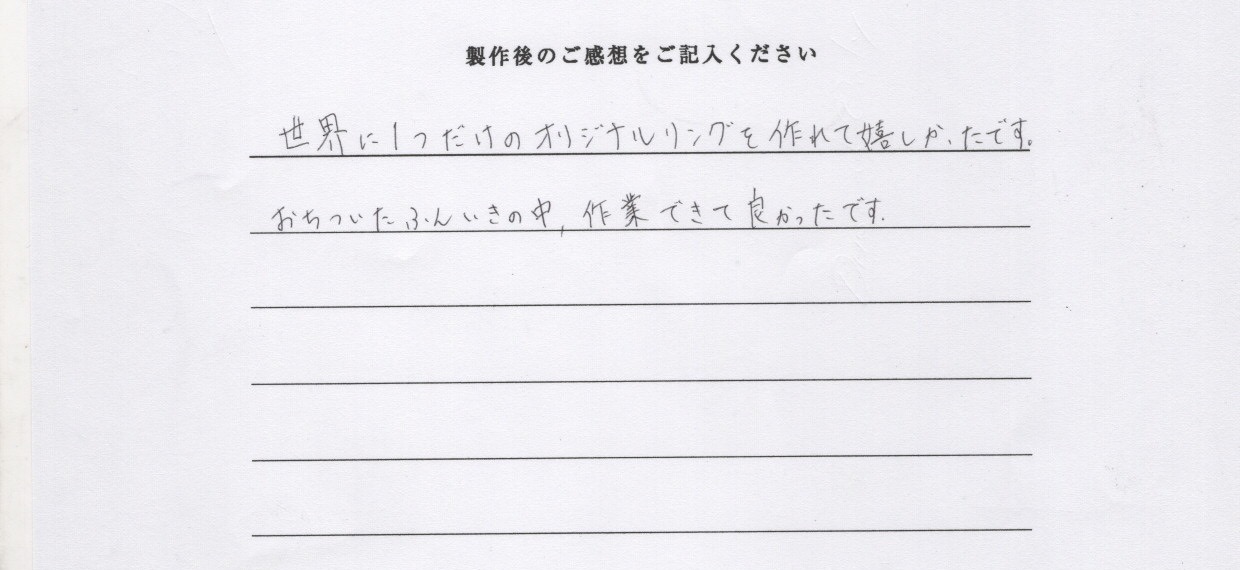 製作後のご感想をご記入ください
世界に1つだけのオリジナルリングを作れて嬉しかったです。
おちついたふんいきの中,作業できて良かったです.